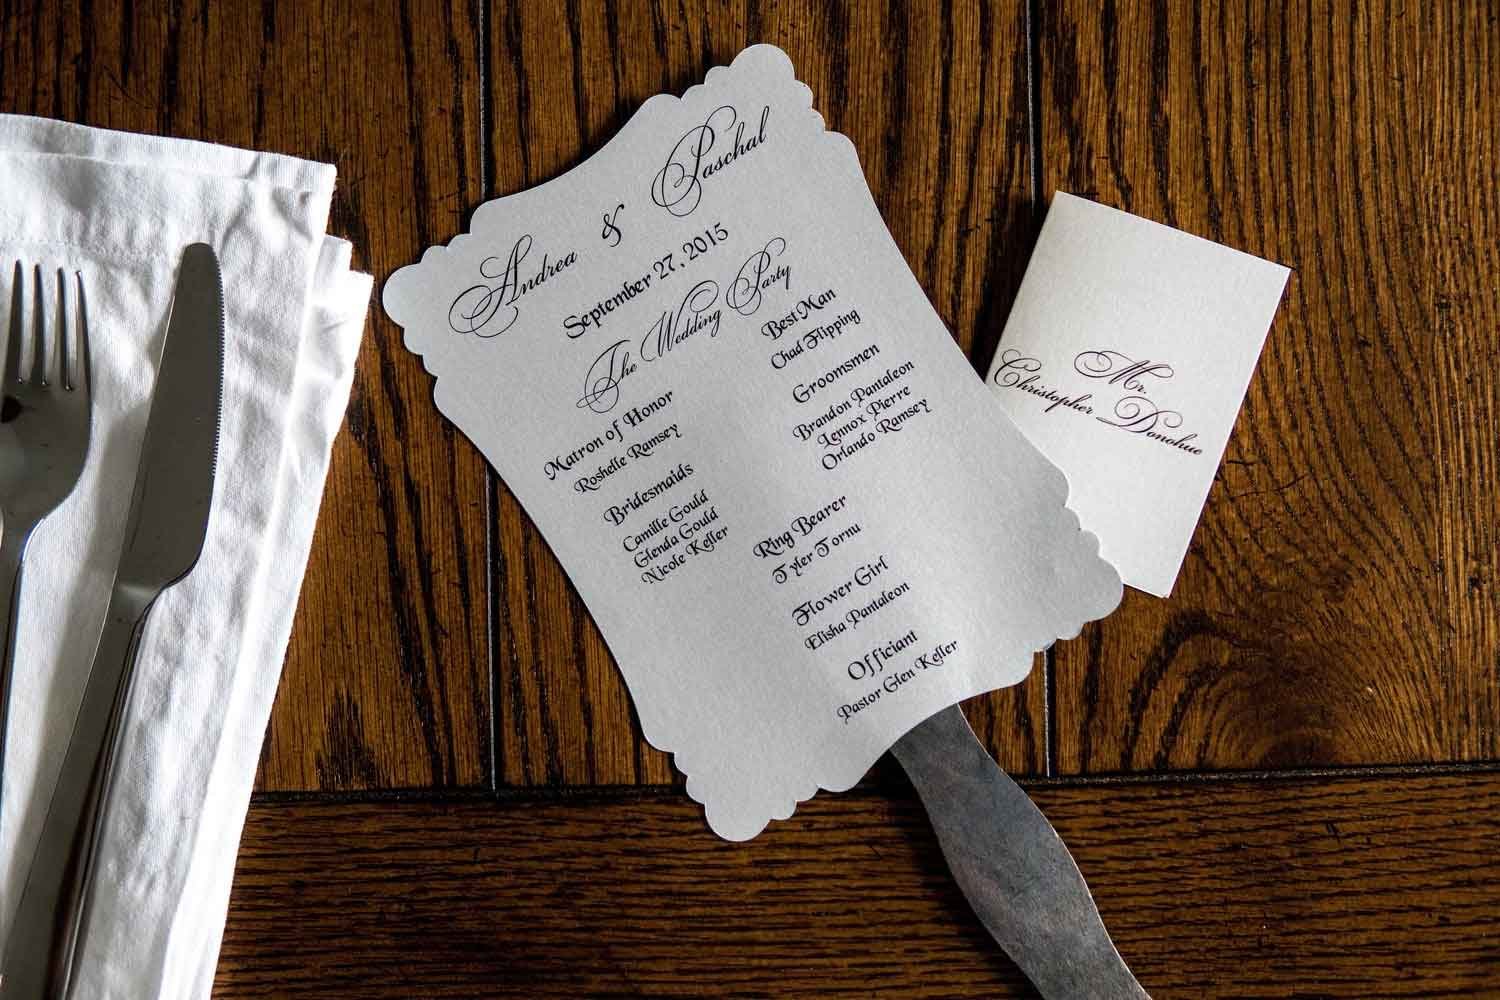 Andrea & Paschal
September 27, 2015
The Wedding Party
Matron of Honor
Roshelle Ramsey
Bridesmaids
Camille Gould
Glenda Gould
Nicole Keller
Best Man
Chad Flipping
Groomsmen
Brandon Pantaleon
Lennox Pierre
Orlando Ramsey
Ring Bearer
Tyler Tornu
Flower Girl
Elisha Pantaleon
Officiant
Pastor Glen Keller
Mr.
Christopher Donohue